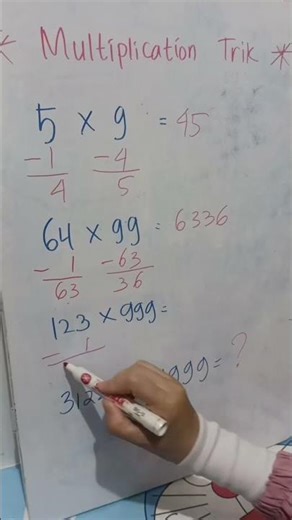 * Multiplication Trik *
5 × 9 = 45
-1 -4
4 5
64 × 99 = 6336
-1 -63
63 36
123 × 999 =
-1
312 999 = ?